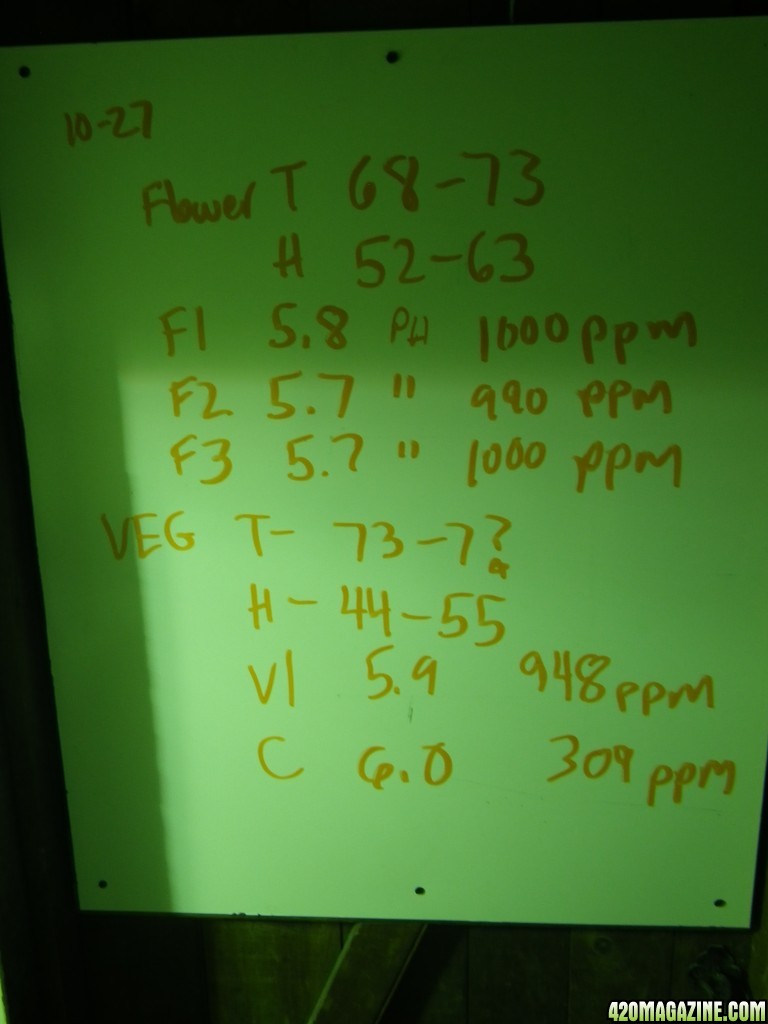 10-27
Flower T 68-73
H 52-63
F1 5.8 PH 1000 ppm
F2 5.7 " 990 ppm
F3 5.7 " 1000 ppm
VEG T- 73-7?
H - 44-55
V1 5.9 948 ppm
C 6.0 309 ppm
420MAGAZINE.COM